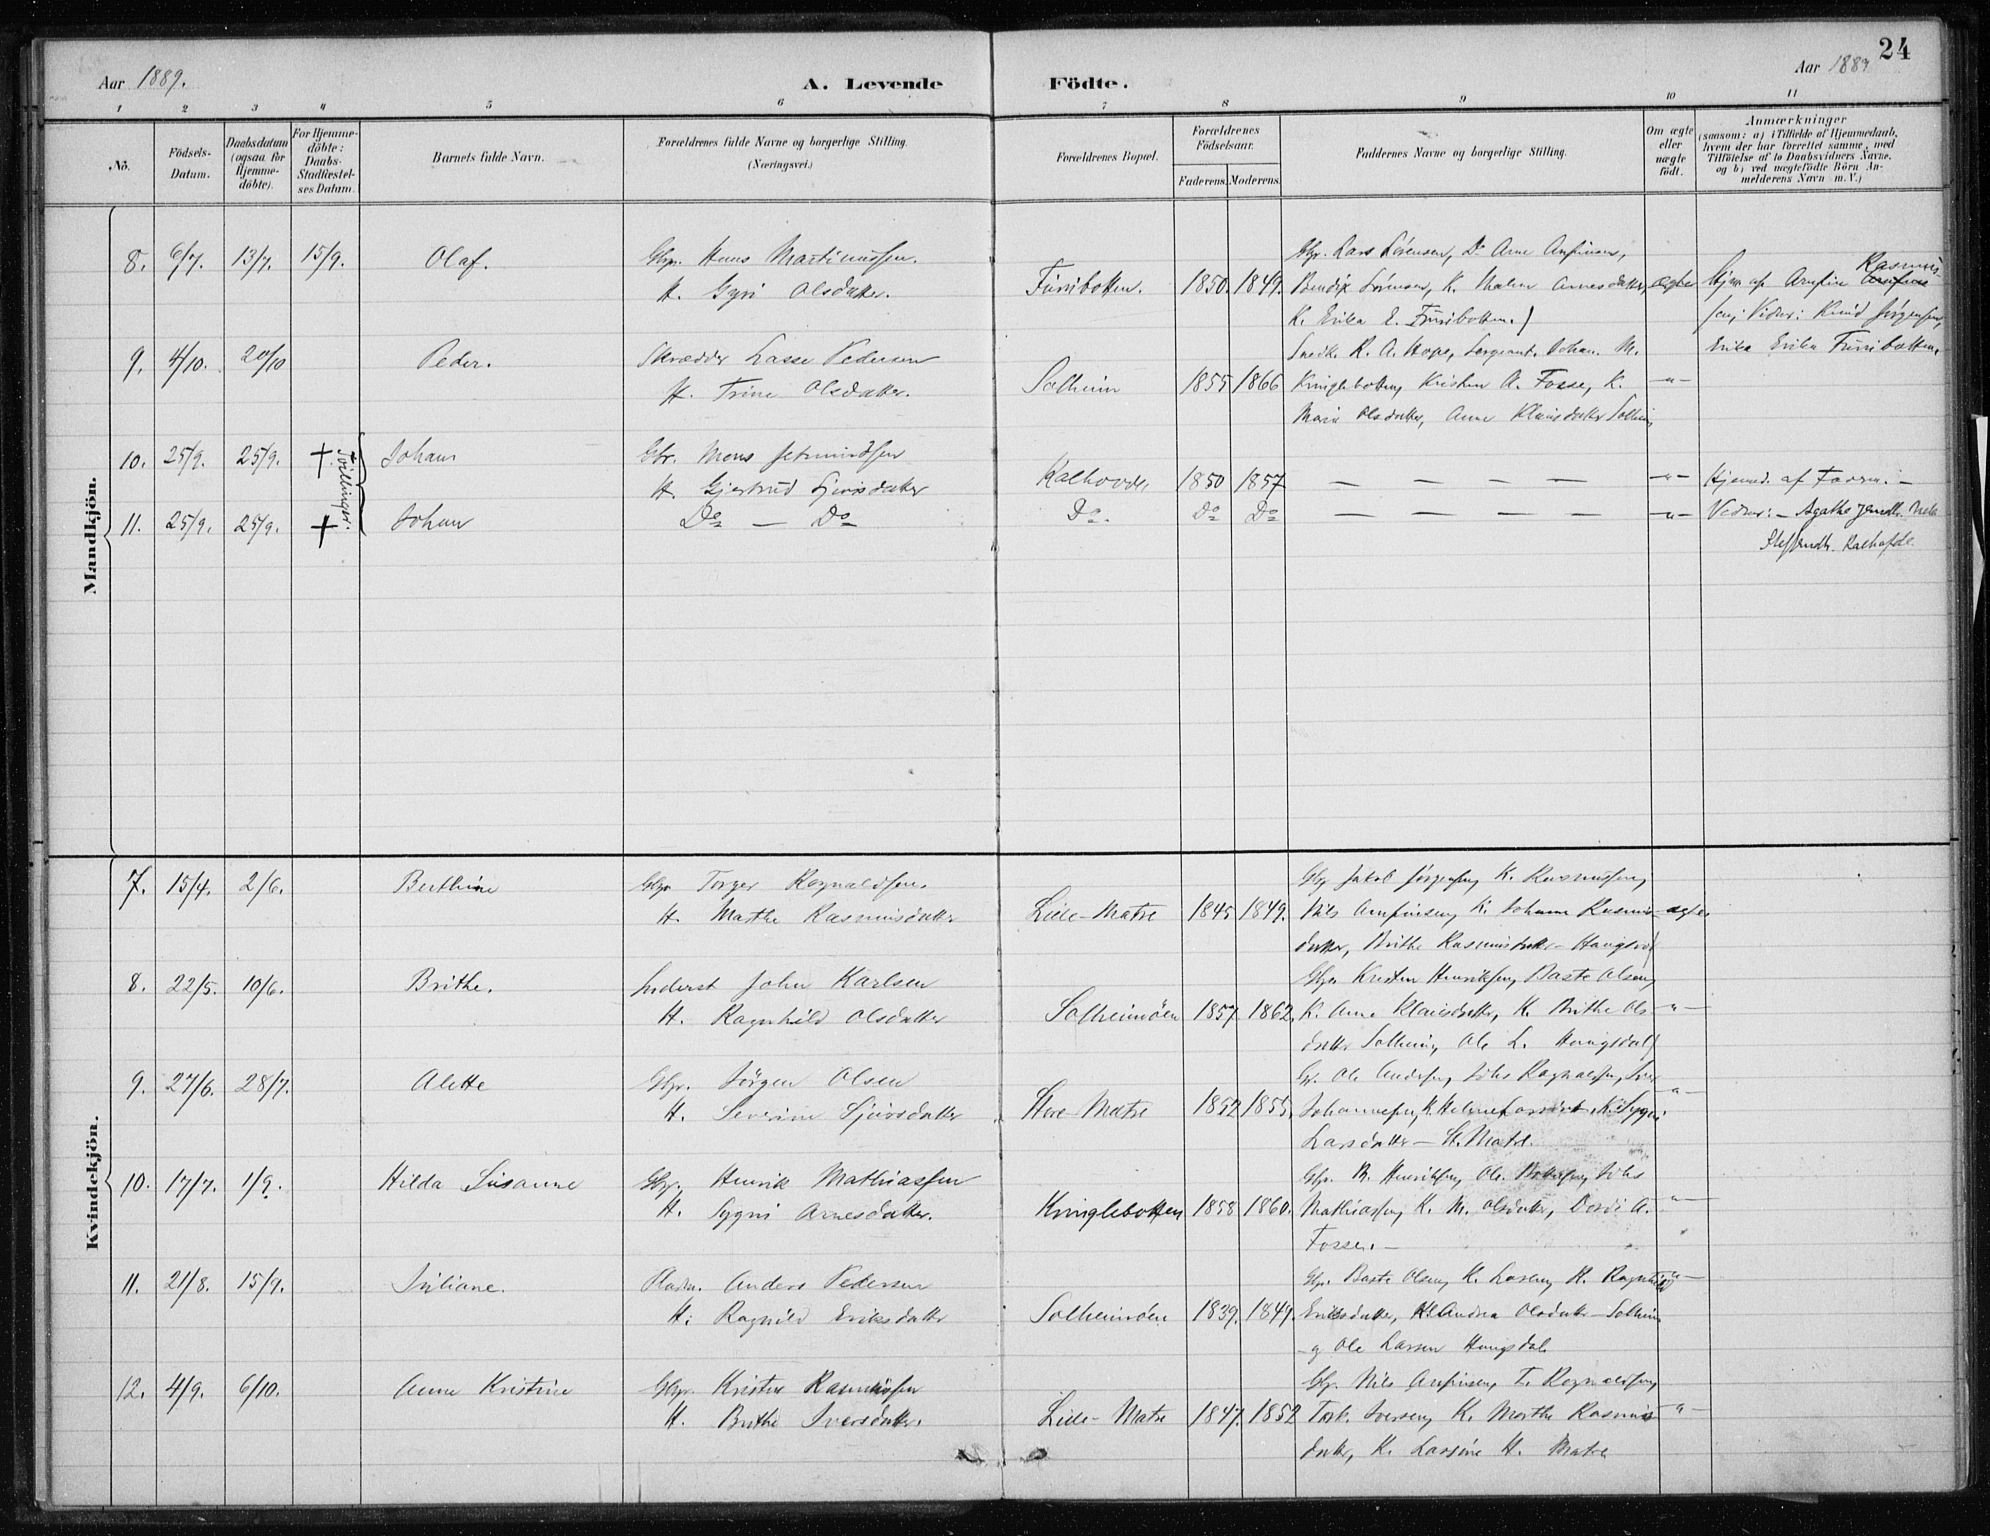 24
Aar 1889.
A. Levende Födte.
Aar 1889
1 2 3 4 5 6 7 8 9 10 11
No.
Födsels-Datum.
Daabsdatum (ogsaa for Hjemme-döbte).
For Hjemme-döbte: Daabs-Stadfæstel-ses Datum.
Barnets fulde Navn.
Forældrenes fulde Navne og borgerlige Stilling.
(Næringsvei.)
Forældrenes Bopæl.
Forældrenes Födselsaar.
Faderens. Moderens.
Faddernes Navne og borgerlige Stilling.
Om ægte eller uægte födt.
Anmærkninger
(saasom: a) i Tilfælde af Hjemmedaab, hvem der har forrettet samme, med Tilföielse af to Daabsvidners Navne, og b) ved uægtefödte Börn Anmelderens Navn m. V.)
Mandkjön.
8. 6/7. 13/7. 15/9. Olaf. Gbr. Hans Martinussen.
H. Gyri Olsdatter. Furebotten. 1850. 1849. ægte
Gbr. Lars Sørensen, Do Arne Anfinsen,
Bendix Sørensen, K. Malene Arnesdatter,
K. Erika E. Furebotten.
Hjem. af Anfin Rasmus-
sen; Vidner: Knud Jørgensen,
Erika Furebotten.
9. 4/10. 20/10 Peder. Skrædder Lasse Pedersen
H. Trine Olsdatter. Solheim 1855 1866 -"-
Snedk. R. A. Hope, Sergeant Johan M.
Kringlebotten, Kristen A. Fosse, K.
Marie Olsdatter, Anne Klausdatter Solheim
10. 25/9. 25/9. + Johan Gbr. Mons
H. Gjertrud Sjursdatter Kalhovde 1850 1857 — — — — — -"- Hjemd. af Farm. -
Tvillinger.
11. 25/9. 25/9. + Johan Do — Do Do. Do Do — — — — — -"- Vidner: - Agathe
Kalhovde.
Kvindekjön.
7. 15/4. 2/6. Berthine Gbr. Torger Ragnaldsen.
H. Marthe Rasmusdatter Lille-Matre 1845 1849. ægte
Gbr. Jakob Jørgensen, K. Rasmussen,
Nils Anfinsen, K. Johanne Rasmus-
datter, Brithe Rasmusdatter - Haugsdal
8. 22/5. 10/6. Brithe. Inderst John Karlsen
H. Ragnhild Olsdatter Solheimöen 1857. 1862. "-
Gbr. Kristen Henriksen, Baste Olsen,
K. Anne Klausdatter, K. Brithe Ols-
datter Solheim, Ole L. Haugsdal
9. 27/6. 28/7. Alette Gbr. Jörgen Olsen
H. Severine Sjursdatter Store-Matre 1852 1855. "-
Gr. Ole Andersen, Johs Ragnaldsen, Iver
Johannesen, K. Helene Larsdat., K. Sygni
Larsdatter - St. Matre.
10. 17/7. 1/9. Hilda Susanne Gbr. Henrik Mathiassen
H. Sygni Arnesdatter. Kringlebotten 1858 1860. "-
Gbr. B. Henriksen, Ole Johs
Mathiassen, K. M. Olsdatter, Dordi A.
Fosse. -
11. 21/8. 15/9. Juliane. Pladsm. Anders Pedersen
H. Ragnild Eriksdatter Solheimöen 1839. 1844. "-
Gbr. Baste Olsen, K. Larsen, K. Ragnhild
Eriksdatter, K. Andrea Olsdatter - Solheim
og Ole Larsen Haugsdal
12. 4/9. 6/10. Anne Kristine Gbr. Kristen Rasmussen
H. Brithe Iversdatter. Lille-Matre 1847. 1852 "-
Gbr. Nils Anfinsen, T. Ragnaldsen,
Tosk. Iversen, K. Marthe Rasmus-
datter, K. Larsine H. Matre